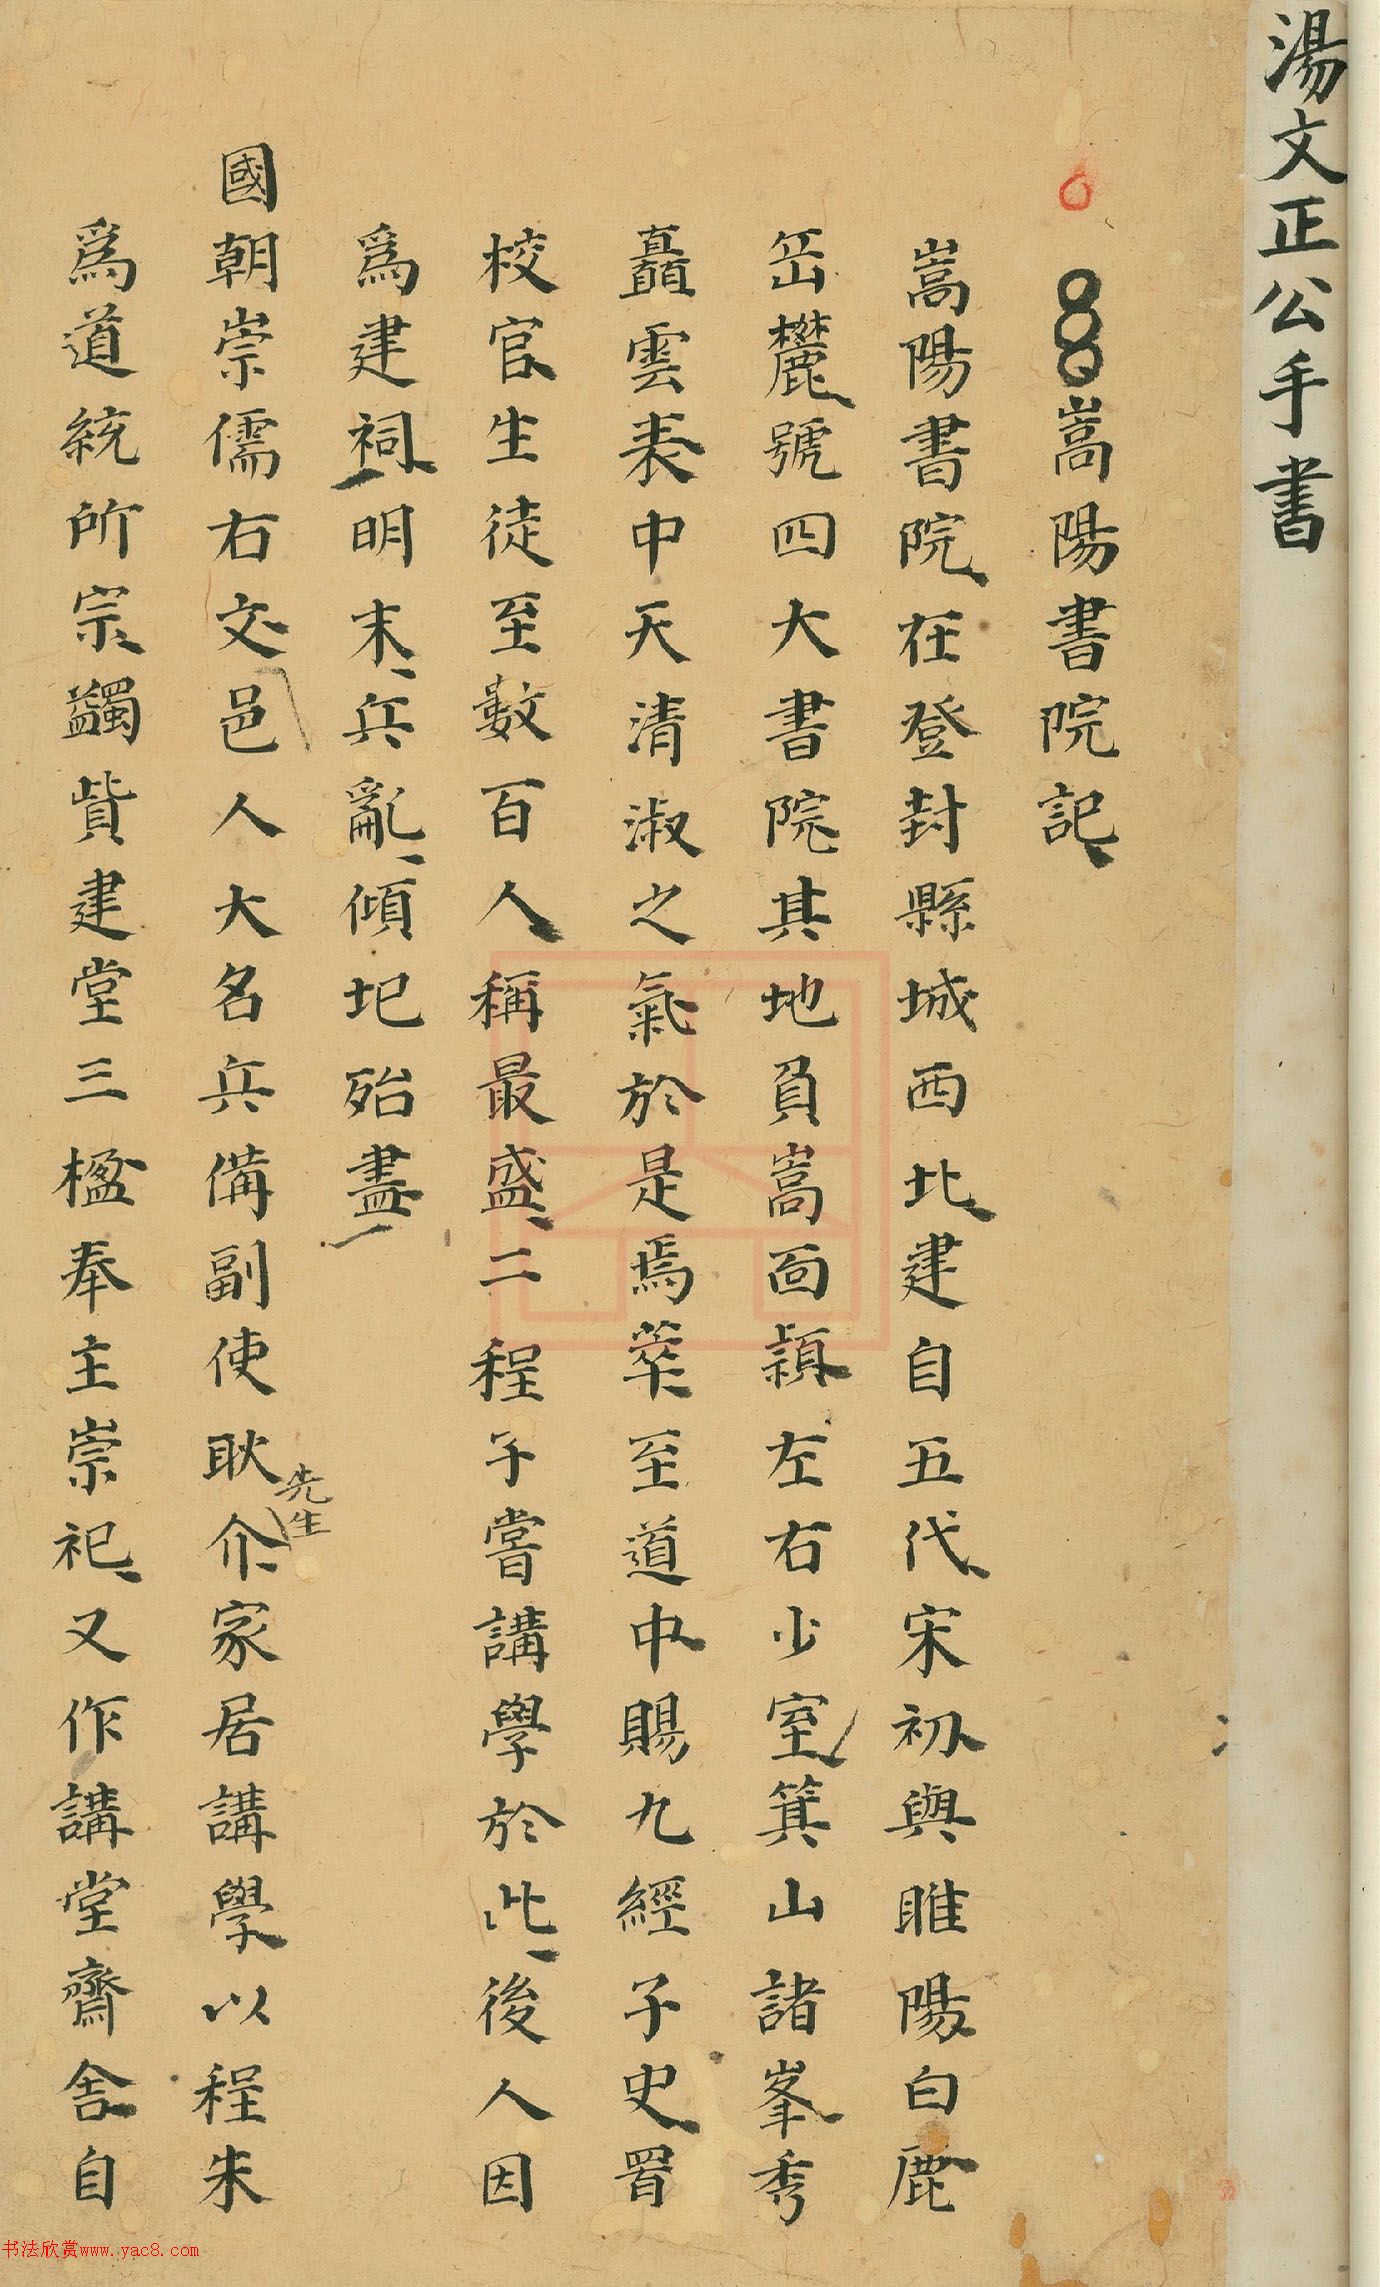 湯文正公手書
嵩陽書院記
嵩陽書院在登封縣城西北建自五代宋初與睢陽白鹿
岳麓號四大書院其地負嵩面潁左右少室箕山諸峯秀
矗雲表中天清淑之氣於是焉萃至道中賜九經子史置
校官生徒至數百人稱最盛二程子嘗講學於此後人因
爲建祠明末兵亂傾圮殆盡
國朝崇儒右文邑人大名兵備副使耿介家居講學以程朱
先生
爲道統所宗蠲貲建堂三楹奉主崇祀又作講堂齋舍自
书法欣赏www.yac8.com